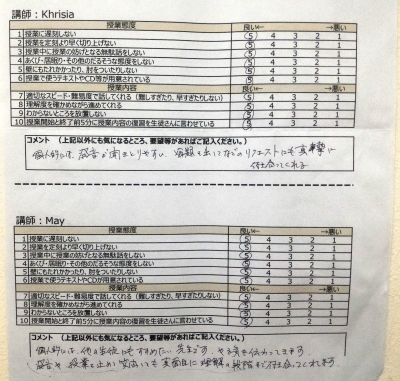 講師：Khrisia
授業態度 良い← →悪い
1 授業に遅刻しない 5 4 3 2 1
2 授業を定刻より早く切り上げない 5 4 3 2 1
3 授業中に授業の妨げとなる無駄話をしない 5 4 3 2 1
4 あくび・居眠り・その他のだるそうな態度をしない 5 4 3 2 1
5 壁にもたれかかったり、肘をついたりしない 5 4 3 2 1
6 授業で使うテキストやCD等が用意されている 5 4 3 2 1
授業内容 良い← →悪い
7 適切なスピード・難易度で話してくれる（難しすぎたり、早すぎたりしない） 5 4 3 2 1
8 理解度を確かめながら進めてくれる 5 4 3 2 1
9 わからないところを放置しない 5 4 3 2 1
10 授業開始と終了前5分に授業内容の復習を生徒さんに言わせている 5 4 3 2 1
コメント （上記以外にも気になるところ、要望等があればご記入ください。）
個人的には、発音が聞きとりやすい、宿題を出してなどのリクエストにも真摯に
付き合ってくれる
講師：May
授業態度 良い← →悪い
1 授業に遅刻しない 5 4 3 2 1
2 授業を定刻より早く切り上げない 5 4 3 2 1
3 授業中に授業の妨げとなる無駄話をしない 5 4 3 2 1
4 あくび・居眠り・その他のだるそうな態度をしない 5 4 3 2 1
5 壁にもたれかかったり、肘をついたりしない 5 4 3 2 1
6 授業で使うテキストやCD等が用意されている 5 4 3 2 1
授業内容 良い← →悪い
7 適切なスピード・難易度で話してくれる（難しすぎたり、早すぎたりしない） 5 4 3 2 1
8 理解度を確かめながら進めてくれる 5 4 3 2 1
9 わからないところを放置しない 5 4 3 2 1
10 授業開始と終了前5分に授業内容の復習を生徒さんに言わせている 5 4 3 2 1
コメント （上記以外にも気になるところ、要望等があればご記入ください。）
個人的には、他の生徒にもすすめたい先生です、やる気も伝わってきます
発音や授業を止めて質問しても真面目に理解する